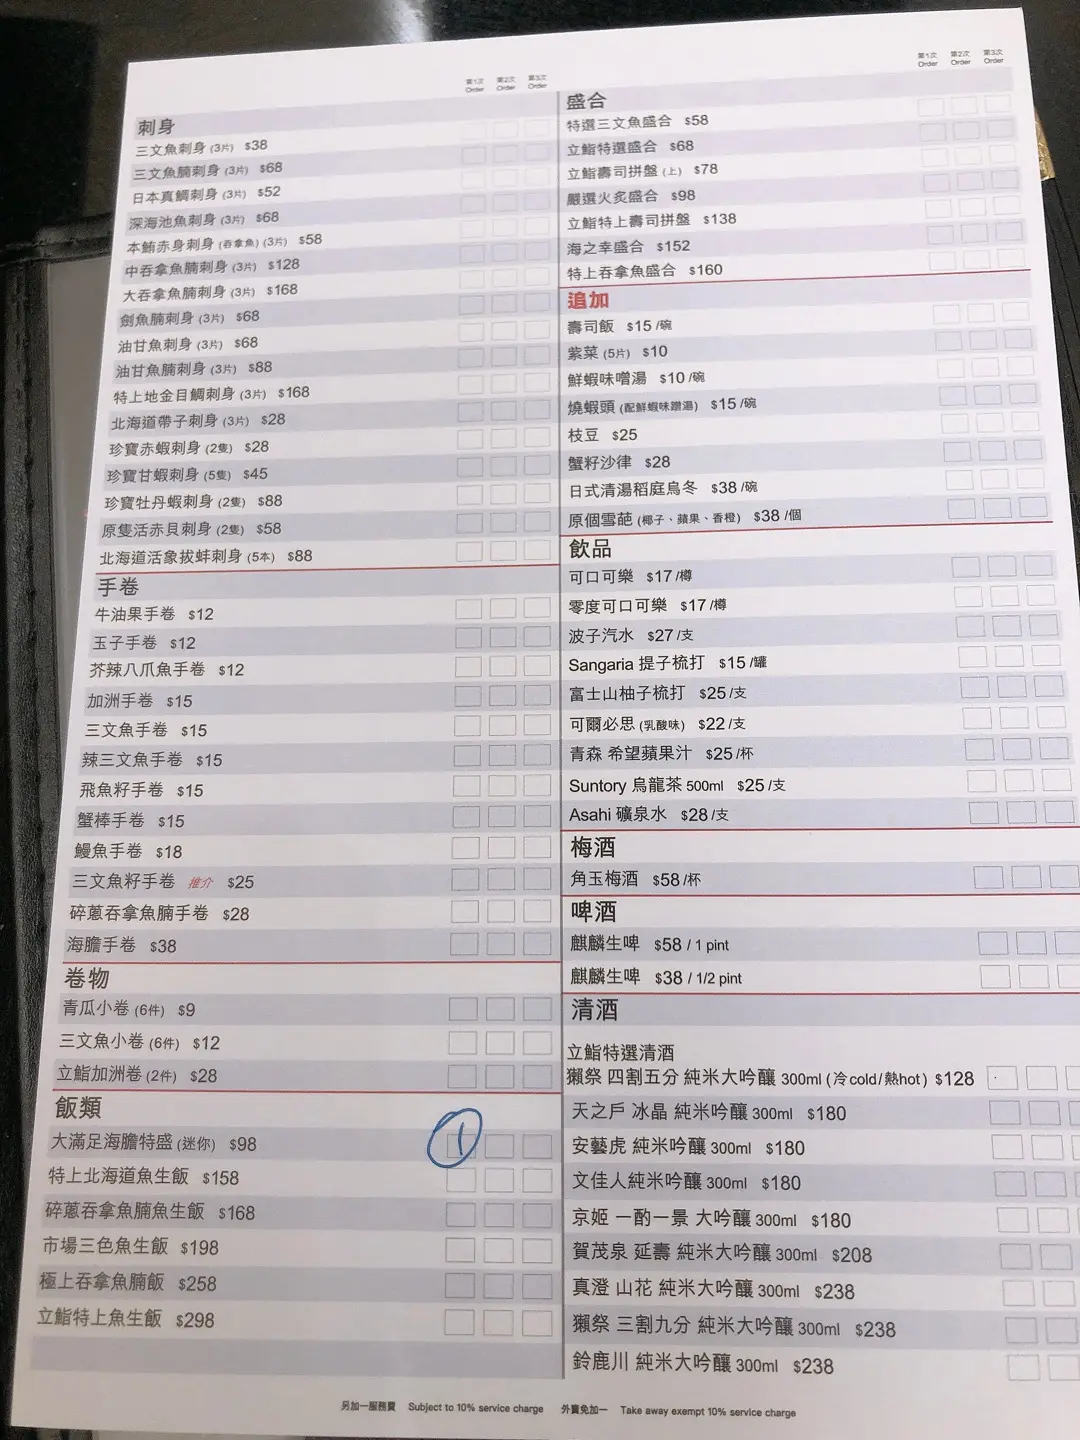 第1次 第2次 第3次
Order Order Order
刺身
三文魚刺身 (3片) $38
三文魚腩刺身 (3片) $68
日本真鯛刺身 (3片) $52
深海池魚刺身 (3片) $68
本鮪赤身刺身 (吞拿魚) (3片) $58
中吞拿魚腩刺身 (3片) $128
大吞拿魚腩刺身 (3片) $168
劍魚腩刺身 (3片) $68
油甘魚刺身 (3片) $68
油甘魚腩刺身 (3片) $88
特上地金目鯛刺身 (3片) $168
北海道帶子刺身 (3片) $28
珍寶赤蝦刺身 (2隻) $28
珍寶甘蝦刺身 (5隻) $45
珍寶牡丹蝦刺身 (2隻) $88
原隻活赤貝刺身 (2隻) $58
北海道活象拔蚌刺身 (5本) $88
手卷
牛油果手卷 $12
玉子手卷 $12
芥辣八爪魚手卷 $12
加洲手卷 $15
三文魚手卷 $15
辣三文魚手卷 $15
飛魚籽手卷 $15
蟹棒手卷 $15
鰻魚手卷 $18
三文魚籽手卷 推介 $25
碎蔥吞拿魚腩手卷 $28
海膽手卷 $38
卷物
青瓜小卷 (6件) $9
三文魚小卷 (6件) $12
立鮨加洲卷 (2件) $28
飯類
大滿足海膽特盛 (迷你) $98 1
特上北海道魚生飯 $158
碎蔥吞拿魚腩魚生飯 $168
市場三色魚生飯 $198
極上吞拿魚腩飯 $258
立鮨特上魚生飯 $298
第1次 第2次 第3次
Order Order Order
盛合
特選三文魚盛合 $58
立鮨特選盛合 $68
立鮨壽司拼盤 (上) $78
嚴選火炙盛合 $98
立鮨特上壽司拼盤 $138
海之幸盛合 $152
特上吞拿魚盛合 $160
追加
壽司飯 $15 /碗
紫菜 (5片) $10
鮮蝦味噌湯 $10 /碗
燒蝦頭 (配鮮蝦味噌湯) $15 /碗
枝豆 $25
蟹籽沙律 $28
日式清湯稻庭烏冬 $38 /碗
原個雪葩 (椰子、蘋果、香橙) $38 /個
飲品
可口可樂 $17 /樽
零度可口可樂 $17 /樽
波子汽水 $27 /支
Sangaria 提子梳打 $15 /罐
富士山柚子梳打 $25 /支
可爾必思 (乳酸味) $22 /支
青森 希望蘋果汁 $25 /杯
Suntory 烏龍茶 500ml $25 /支
Asahi 礦泉水 $28 /支
梅酒
角玉梅酒 $58 /杯
啤酒
麒麟生啤 $58 / 1 pint
麒麟生啤 $38 / 1/2 pint
清酒
立鮨特選清酒
獺祭 四割五分 純米大吟釀 300ml (冷cold/熱hot) $128
天之戶 冰晶 純米吟釀 300ml $180
安藝虎 純米吟釀 300ml $180
文佳人純米吟釀 300ml $180
京姬 一酌一景 大吟釀 300ml $180
賀茂泉 延壽 純米大吟釀 300ml $208
真澄 山花 純米大吟釀 300ml $238
獺祭 三割九分 純米大吟釀 300ml $238
鈴鹿川 純米大吟釀 300ml $238
另加一服務費 Subject to 10% service charge 外賣免加一 Take away exempt 10% service charge